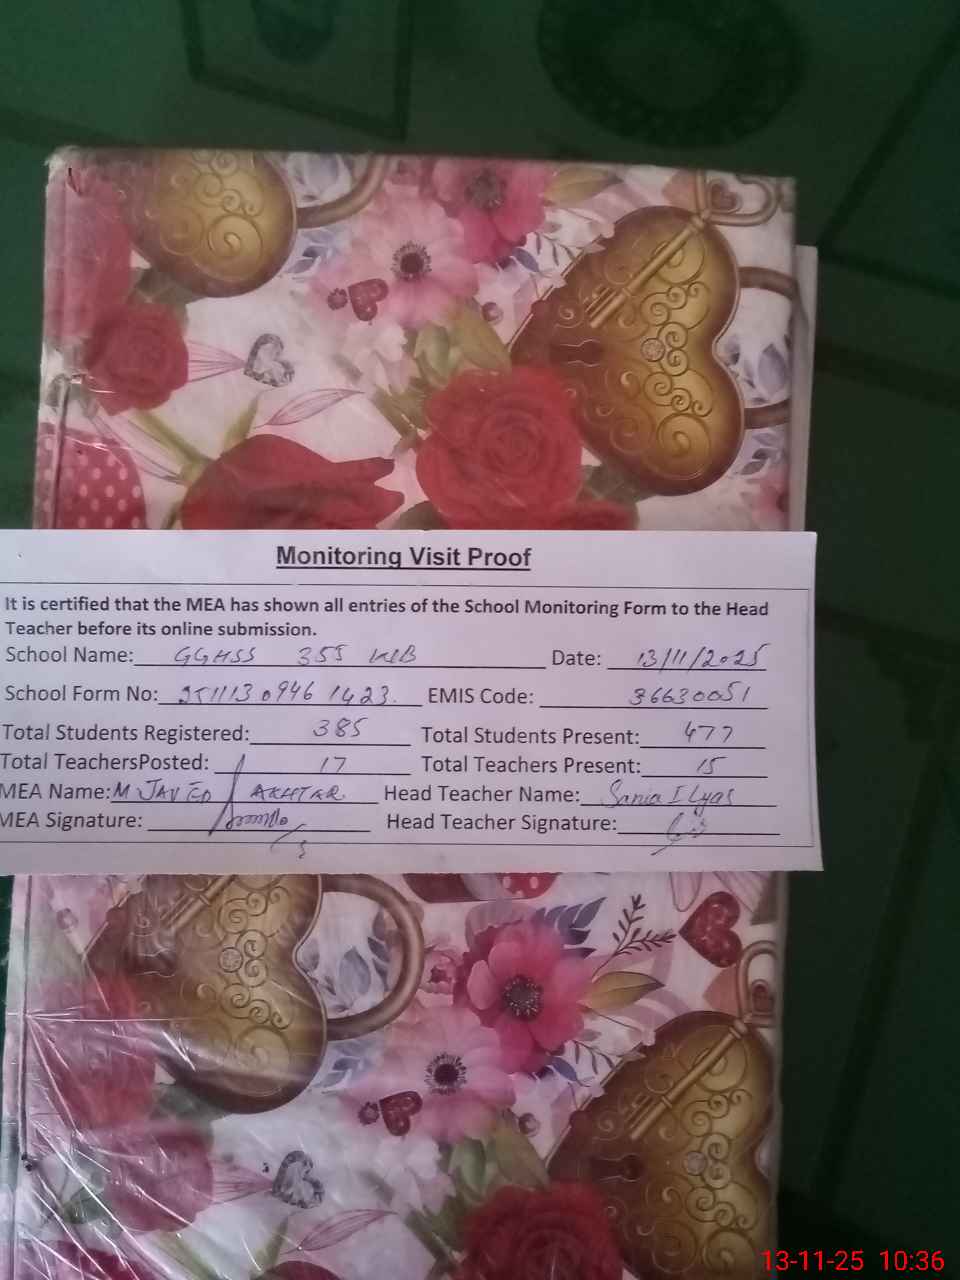 Monitoring Visit Proof
It is certified that the MEA has shown all entries of the School Monitoring Form to the Head
Teacher before its online submission.
School Name: GGHSS 355 WB Date: 13/11/2025
School Form No: 251113 0946 1423. EMIS Code: 36630051
Total Students Registered: 385 Total Students Present: 477
Total TeachersPosted: 17 Total Teachers Present: 15
MEA Name: M JAVED AKHTAR Head Teacher Name: Sania Ilyas
MEA Signature: Head Teacher Signature:
13-11-25 10:36